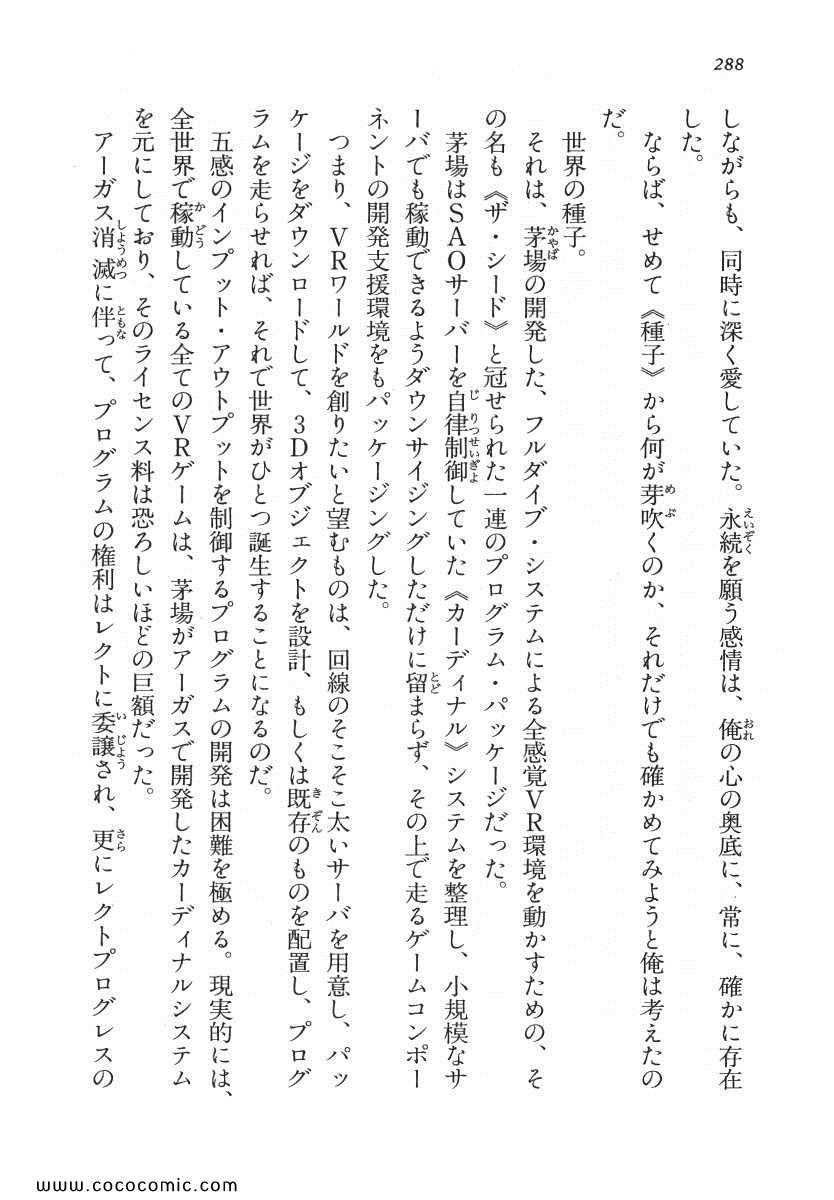 288
しながらも、同時に深く愛していた。永続を願う感情は、俺の心の奥底に、常に、確かに存在
した。
ならば、せめて《種子》から何が芽吹くのか、それだけでも確かめてみようと俺は考えたの
だ。
世界の種子。
それは、茅場の開発した、フルダイブ・システムによる全感覚ＶＲ環境を動かすための、そ
の名も《ザ・シード》と冠せられた一連のプログラム・パッケージだった。
茅場はＳＡＯサーバーを自律制御していた《カーディナル》システムを整理し、小規模なサ
ーバでも稼動できるようダウンサイジングしただけに留まらず、その上で走るゲームコンポー
ネントの開発支援環境をもパッケージングした。
つまり、ＶＲワールドを創りたいと望むものは、回線のそこそこ太いサーバを用意し、パッ
ケージをダウンロードして、３Ｄオブジェクトを設計、もしくは既存のものを配置し、プログ
ラムを走らせれば、それで世界がひとつ誕生することになるのだ。
五感のインプット・アウトプットを制御するプログラムの開発は困難を極める。現実的には、
全世界で稼動している全てのＶＲゲームは、茅場がアーガスで開発したカーディナルシステム
を元にしており、そのライセンス料は恐ろしいほどの巨額だった。
アーガス消滅に伴って、プログラムの権利はレクトに委譲され、更にレクトプログレスの
www.cococomic.com